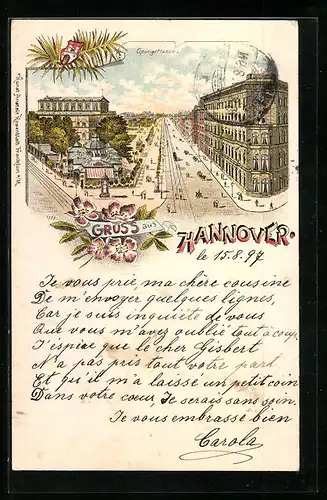 Georgstrasse.
Kunstanstalt Rosenblatt Frankfurt a/M.
GRUSS aus
HANNOVER.
le 15.8.97
Je vous prie, ma chère cousine
De m'envoyer quelques lignes,
Car je suis inquiète de vous
Que vous m'avez oublié tout à coup
J'espère que le cher Gisbert
N'a pas pris tout votre part
Et qu'il m'a laissé un petit coin
Dans votre cœur. Je serais sans soin.
Je vous embrasse bien
Carola